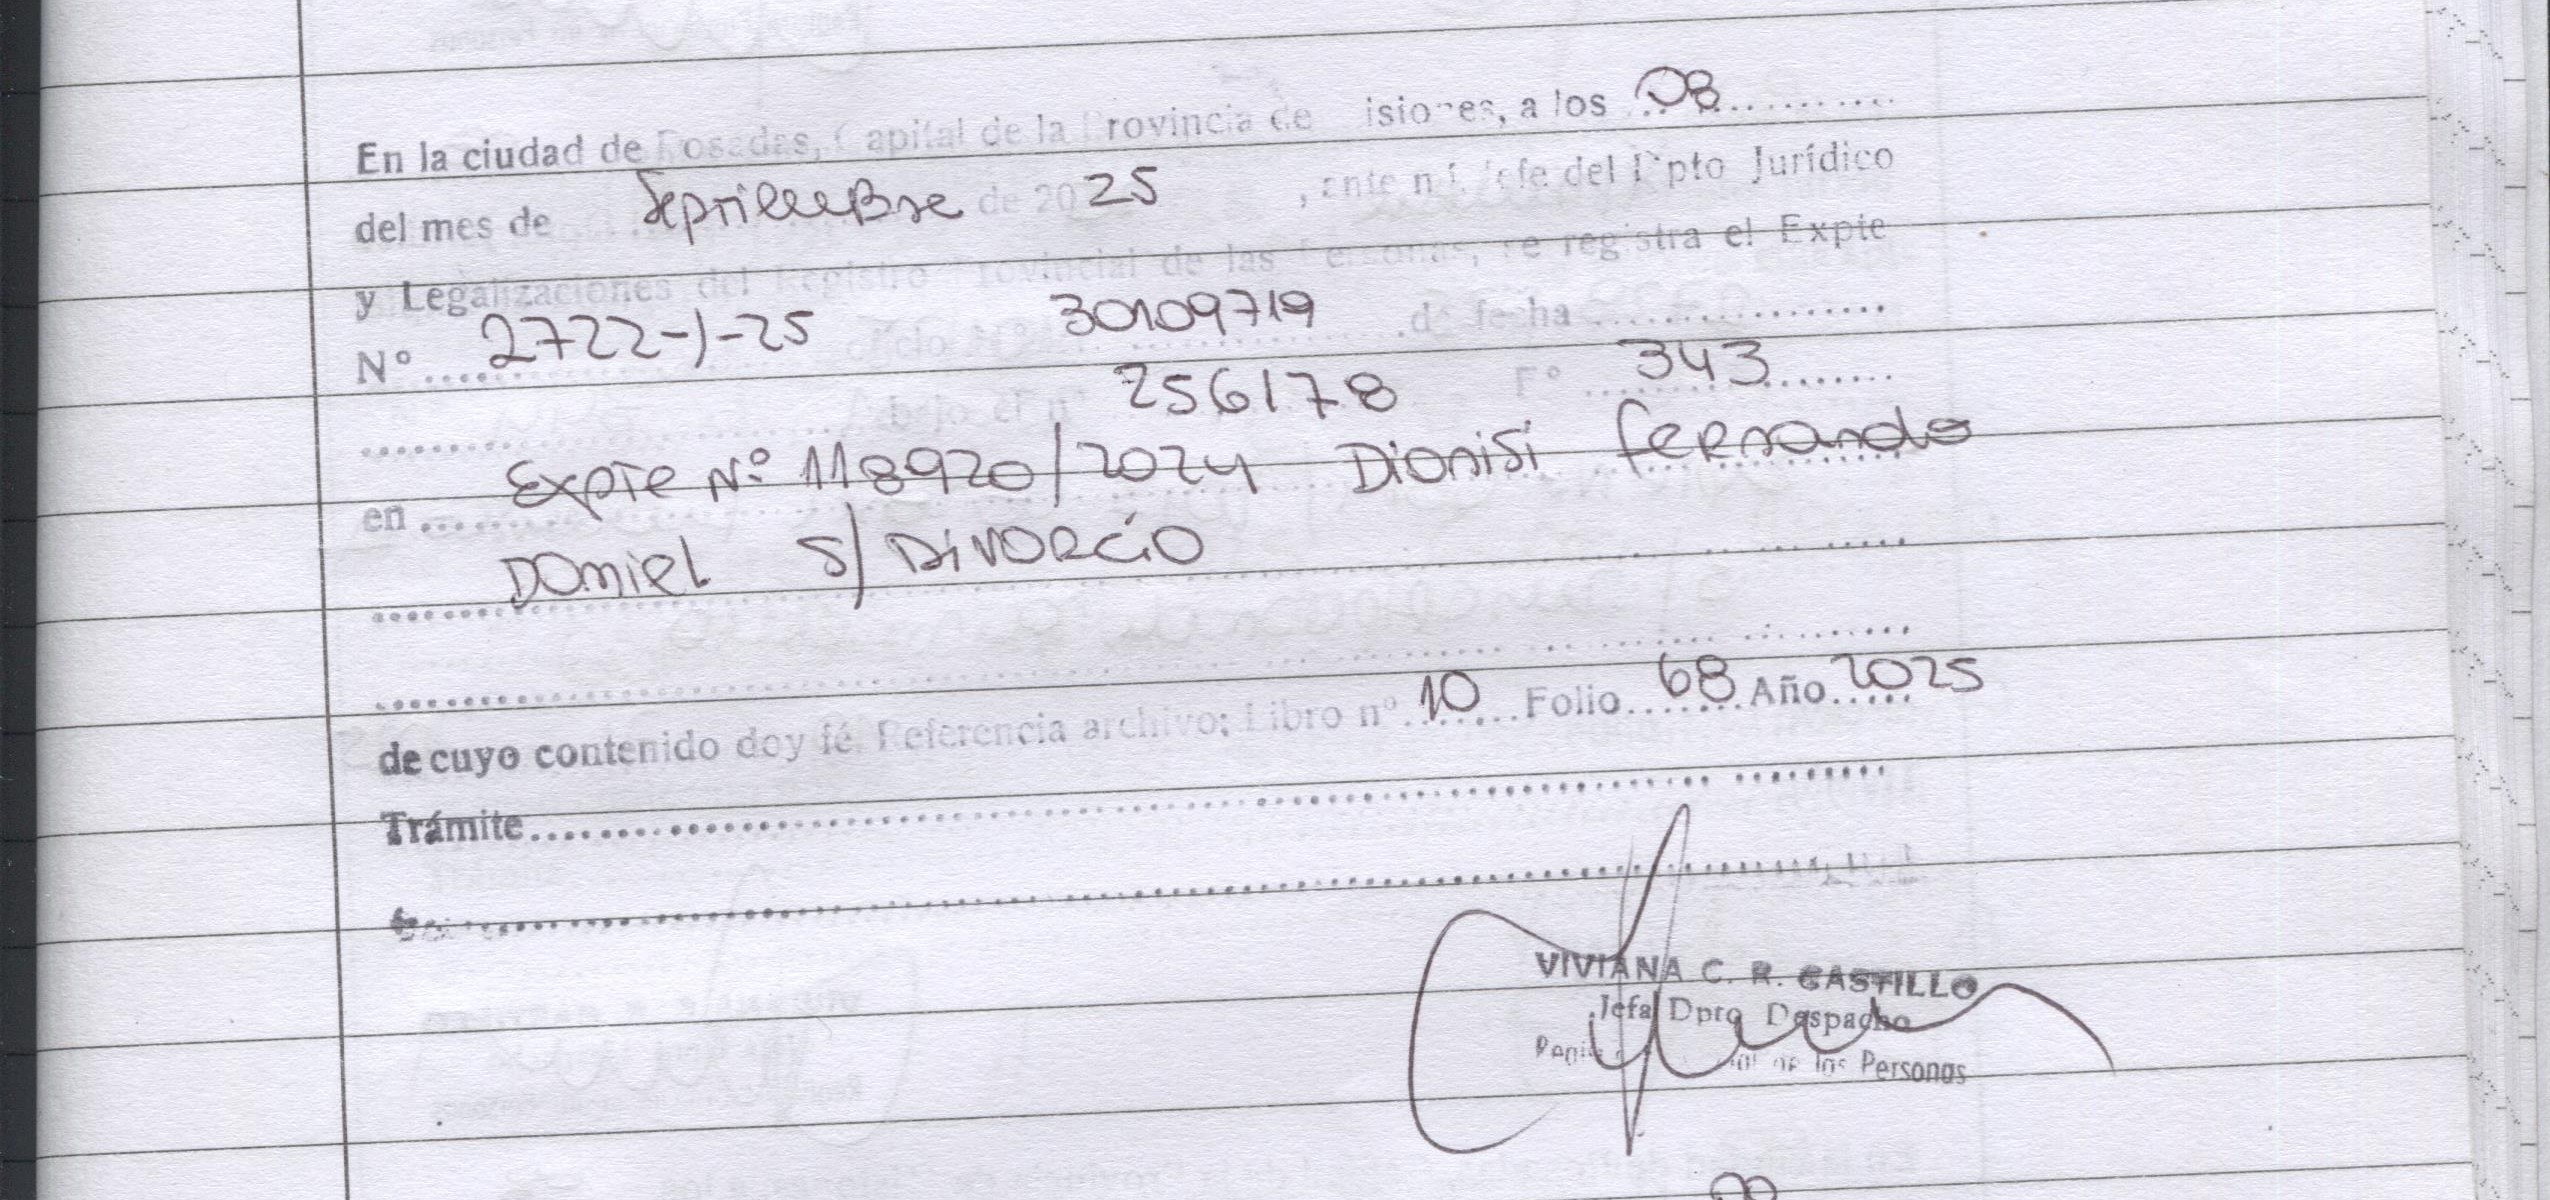 En la ciudad de Posadas, Capital de la Provincia de isiones, a los 08
del mes de Septiembre de 20 25 , ante mí, Jefe del Dpto Jurídico
y Legalizaciones del Registro Provincial de las Personas, se registra el Expte
N° 2722-J-25 30109719 de fecha
bajo el n° 256178 F° 343
en Expte N° 118920/2024 Dionisi Fernando
Daniel S/ Divorcio
de cuyo contenido doy fé. Referencia archivo: Libro n° 10 Folio 68 Año 2025
Trámite
VIVIANA C. R. CASTILLO
Jefa Dpto Despacho
de las Personas